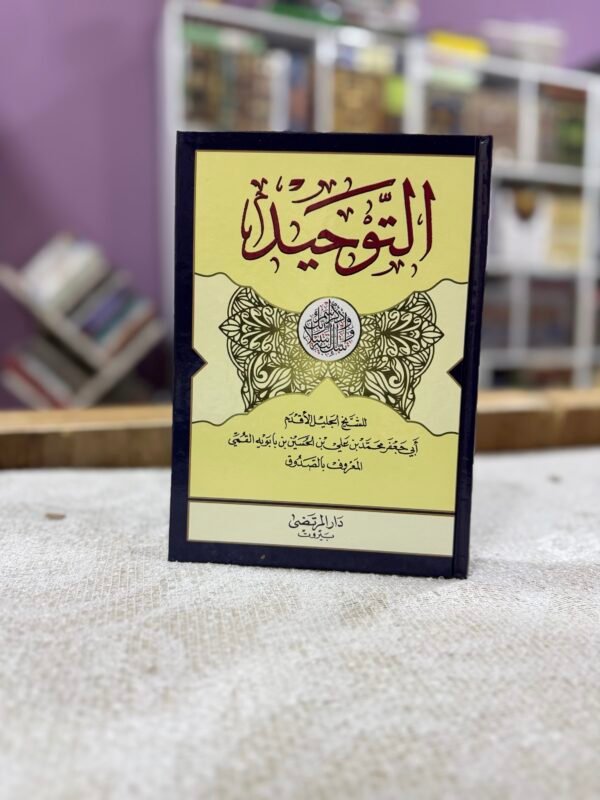 التَّوْحِيْد
للشَّيْخ الجَليْل الأَقْدَم
أَبي جَعْفَر محَمَّد بْن عَلي بْن الحُسَيْن بْن بَابوَيْه القُمِّي
المَعْرُوف بالصَّدُوق
دَار المُرتَضَى
بَيْرُوت